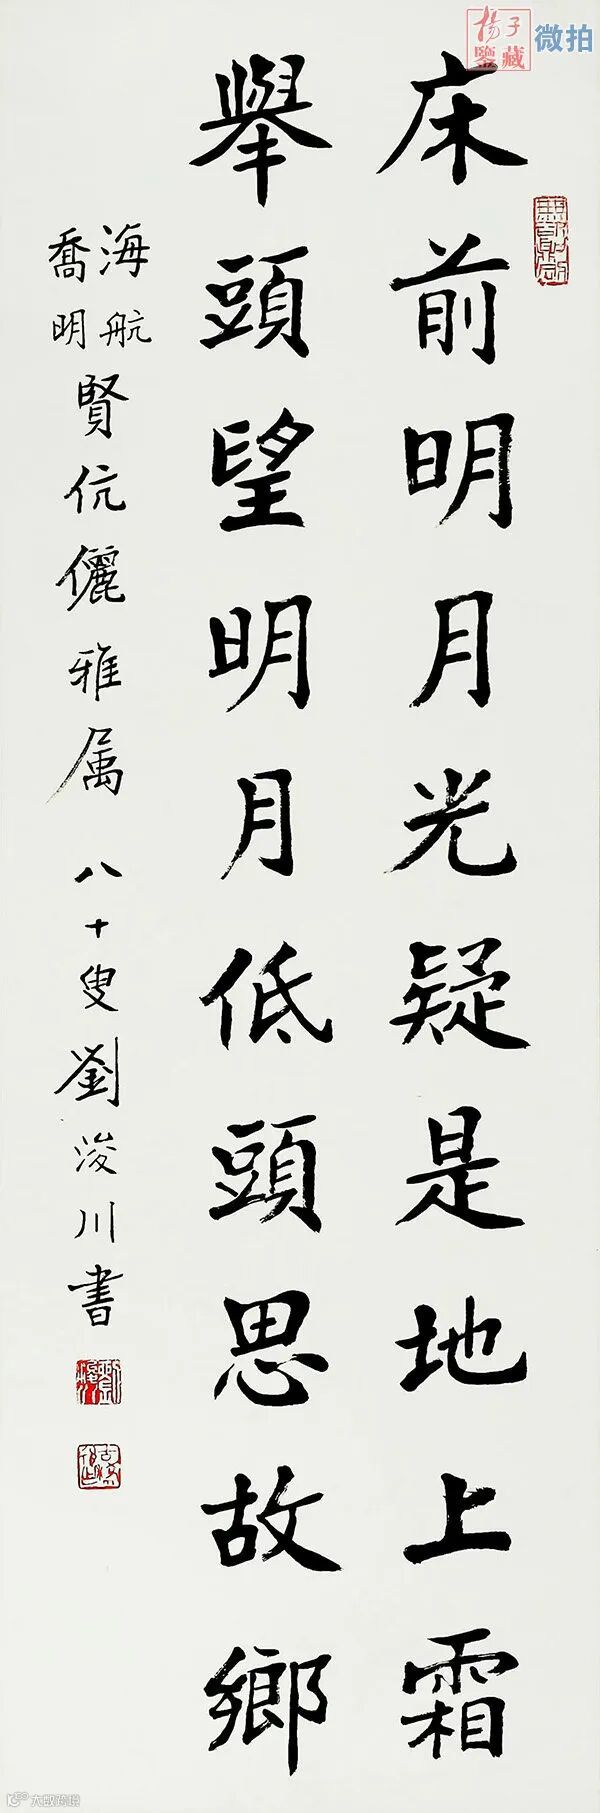 床前明月光疑是地上霜
舉頭望明月低頭思故鄉
海航
喬明
賢伉儷雅属 八十叟劉浚川書
楊子鑒藏
微拍